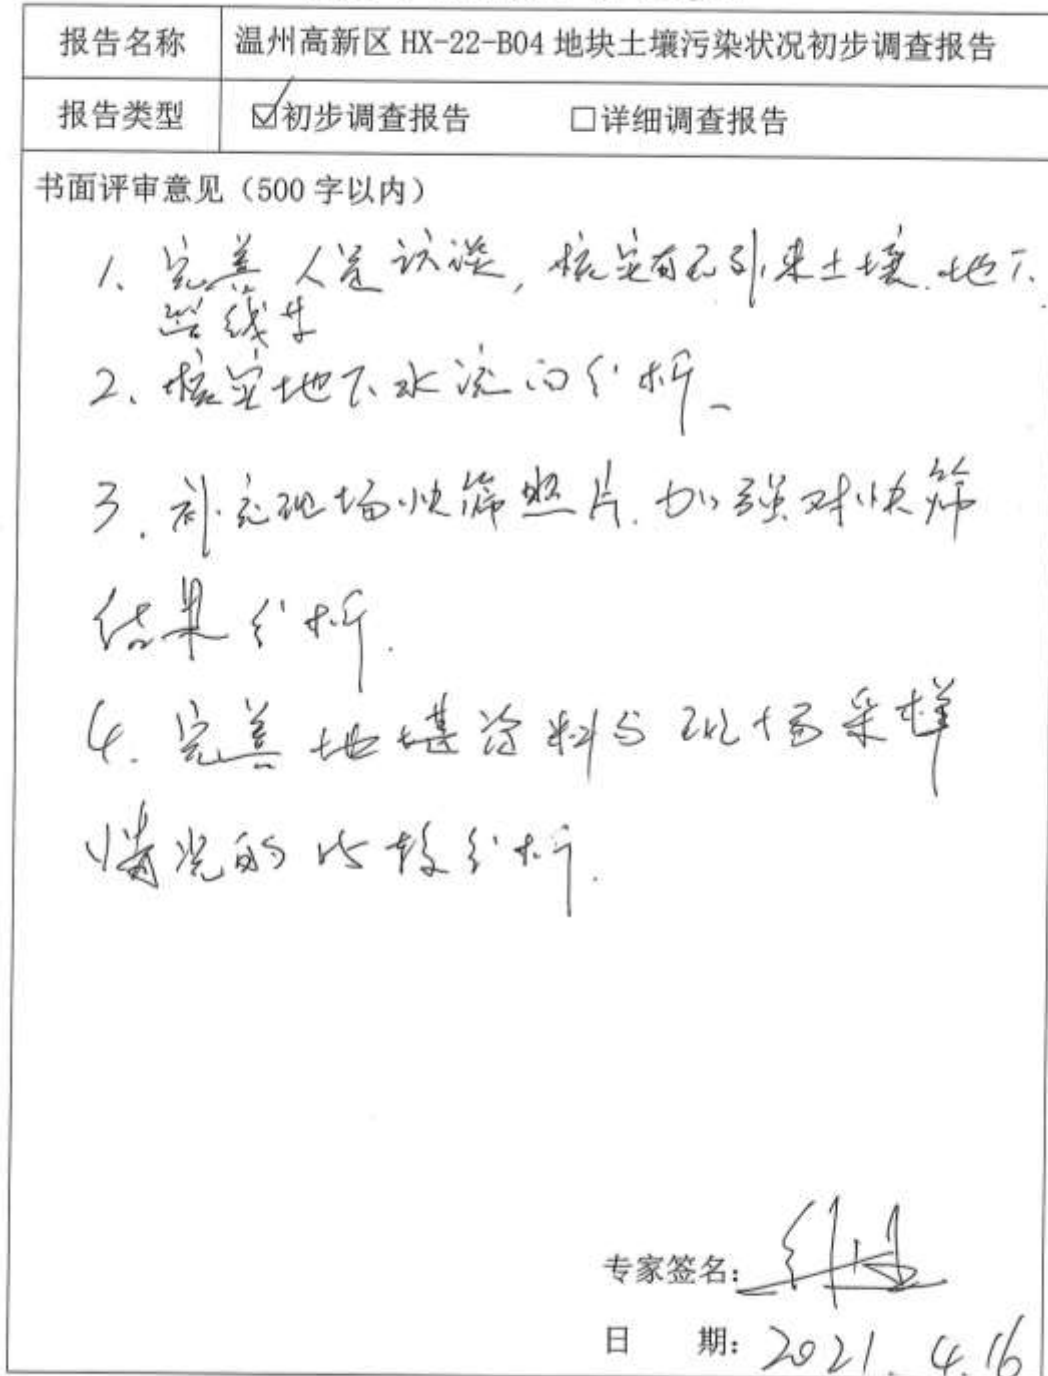 报告名称 温州高新区 HX-22-B04 地块土壤污染状况初步调查报告
报告类型 ☑初步调查报告 □详细调查报告
书面评审意见（500 字以内）
1、完善人员访谈，核实有无引来土壤、地下
管线等
2、核实地下水流向分析。
3、补充现场快筛照片，加强对快筛
结果分析.
4. 完善地勘资料与现场采样
情况的比较分析.
专家签名：
日 期：2021.4.16